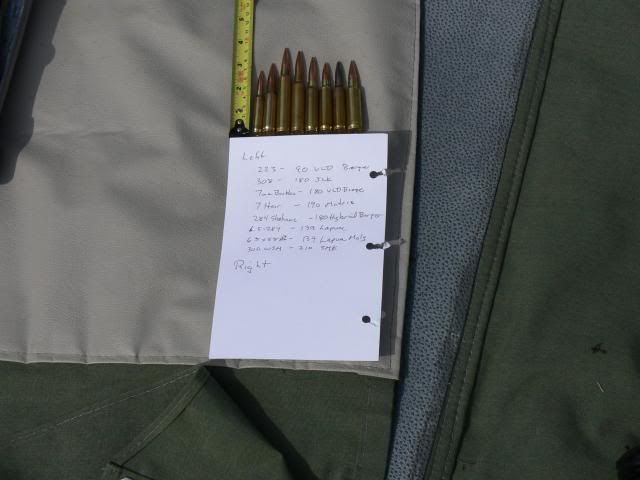 Left
223 - 90 VLD Berger
308 - 180 JLK
7mm - 180 VLD Berger
7 - 190 Matrix
284 Shehane - 180 Hybrid Berger
6.5-284 - 139 Lapua
- 139 Lapua Moly
300 WSM - 210 SMK
Right